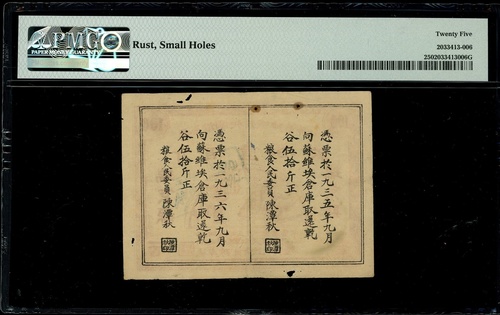 PMG
PAPER MONEY GUARANTY
Rust, Small Holes
Twenty Five
2033413-006
2502033413006G
憑票於一九三五年九月
向蘇維埃倉庫取還乾
谷伍拾斤正
糧食人民委員 陳潭秋
憑票於一九三六年九月
向蘇維埃倉庫取還乾
谷伍拾斤正
糧食人民委員 陳潭秋